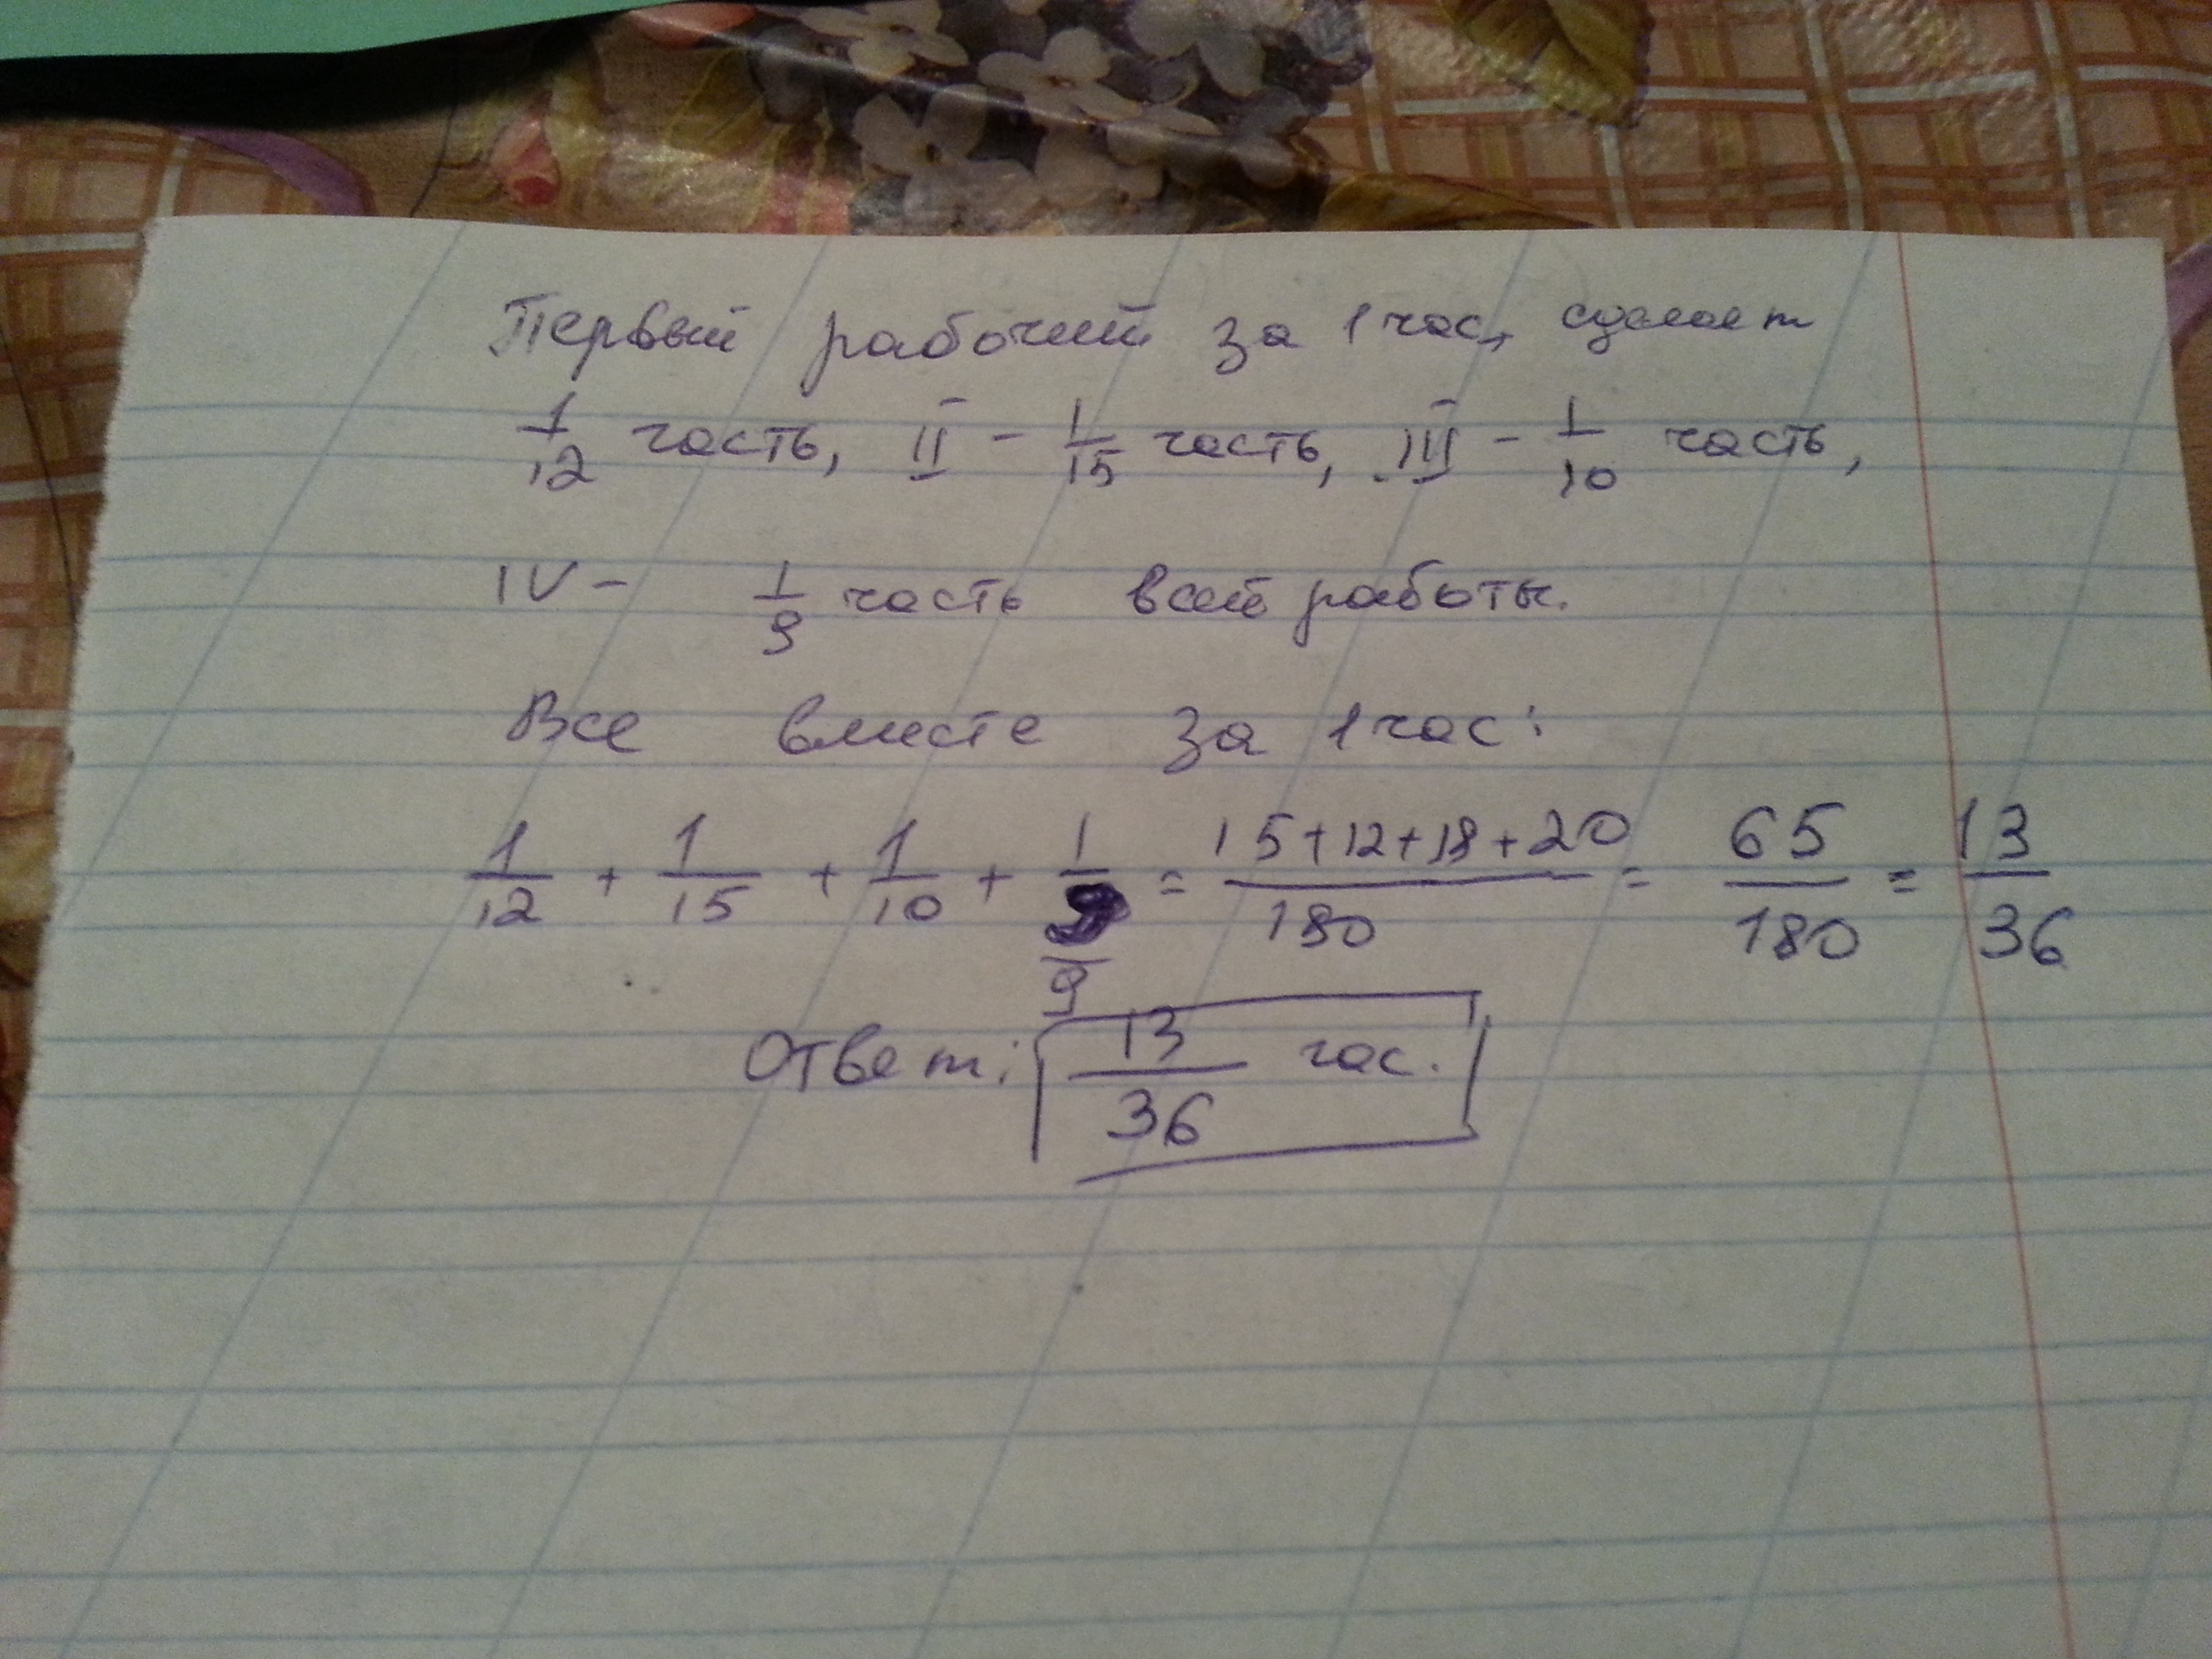 Первый рабочий за 1 час, сделает
1/12 часть, II - 1/15 часть, III - 1/10 часть,
IV - 1/9 часть всей работы.
Все вместе за 1 час:
1/12 + 1/15 + 1/10 + 1/9 = (15+12+18+20)/180 = 65/180 = 13/36
Ответ: 13/36 час.